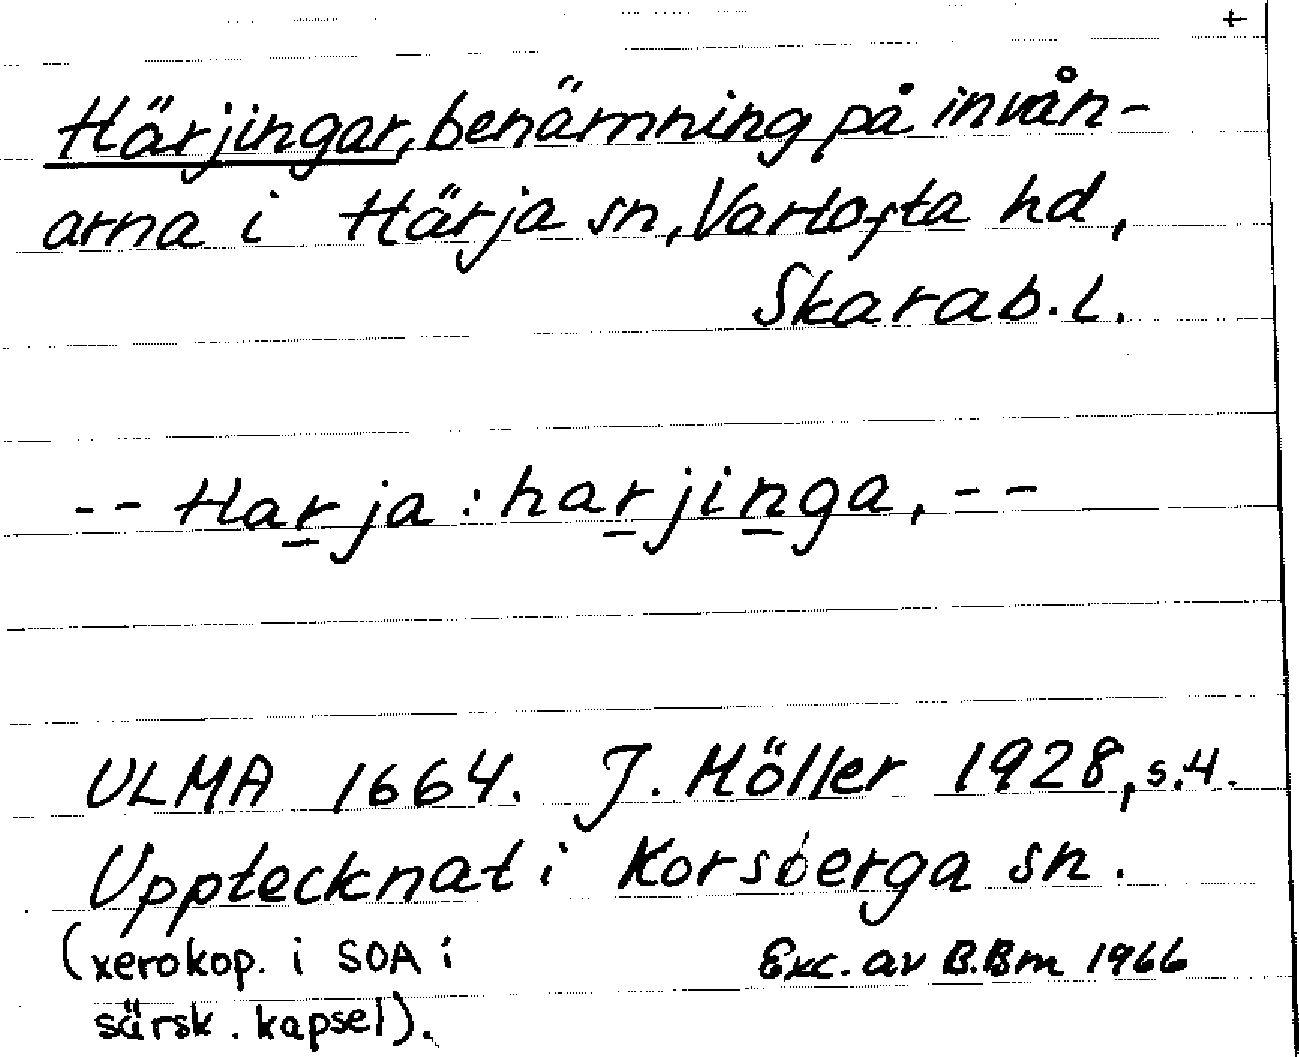 +
Härjingar, benämning på invån-
arna i Härja sn, Vartofta hd,
Skarab. l.
-- Harja : harjinga, --
ULMA 1664. J. Höller 1928, s. 4.
Upptecknat i Korsberga sn.
(xerokop. i SOA i
Exc. av B.Bm 1966
särsk. kapsel).